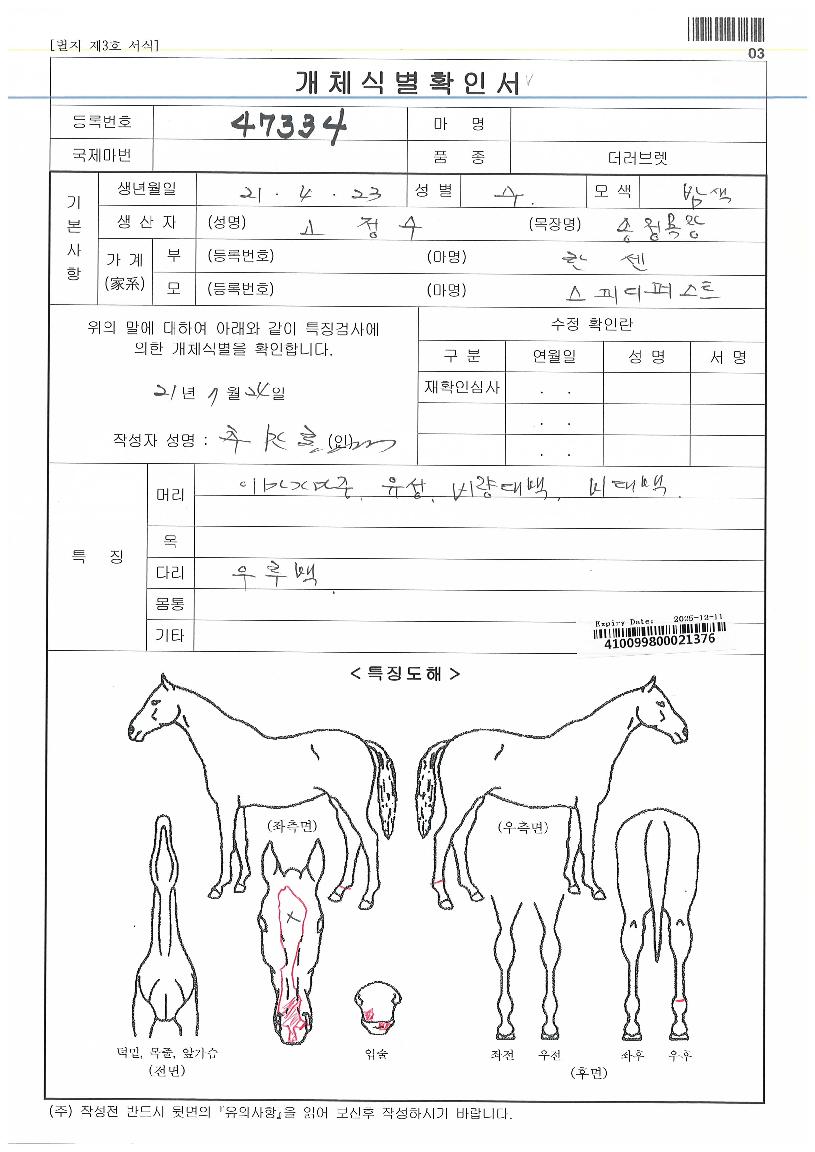 [별지 제3호 서식]
03
개체식별확인서
등록번호 47334 마 명
국제마번 품 종 더러브렛
기본사항
생년월일 21 . 4 . 23 성 별 수. 모 색 밤색
생 산 자 (성명) 고 정 수 (목장명) 송원목장
가 계 (家系) 부 (등록번호) (마명) 한 센
모 (등록번호) (마명) 스피디퍼스트
위의 말에 대하여 아래와 같이 특징검사에
의한 개체식별을 확인합니다.
21년 7월 24일
작성자 성명 : (인)
수정 확인란
구 분 연월일 성 명 서 명
재확인심사 . .
. .
. .
특 징
머리 유성, 비량대백, 비대백.
목
다리 우후백
몸통
기타
Expiry Date: 2025-12-11
410099800021376
< 특징도해 >
(좌측면) (우측면)
턱밑, 목줄, 앞가슴 입술 좌전 우전 좌후 우후
(전면) (후면)
(주) 작성전 반드시 뒷면의 『유의사항』을 읽어 보신후 작성하시기 바랍니다.